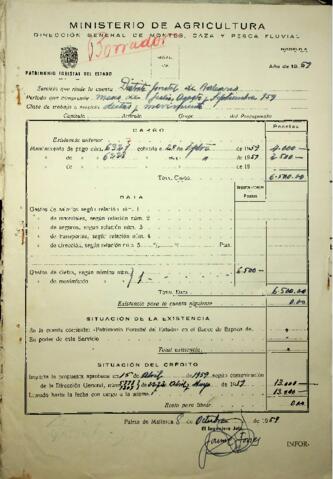 MINISTERIO DE AGRICULTURA
DIRECCIÓN GENERAL DE MONTES, CAZA Y PESCA FLUVIAL
Borrador
PATRIMONIO FORESTAL DEL ESTADO
Año de 1959
Servicio que rinde la cuenta Distrito forestal de Baleares
Período que comprende meses de Julio, Agosto y Septiembre 959
Clase de trabajo a realizar dietas y
Capítulo Artículo Grupo del Presupuesto
Pesetas
CARGO
Existencia anterior
Mandamiento de pago núm. cobrado el de 1959 4.000
de de 19 2.500
de de 19
Total Cargo 6.500.00
DATA
Gastos de relación núm. 1
de materiales, según relación núm. 2
de seguros, según relación núm. 3
de transportes, según relación núm. 4
de dirección, según relación núm. 5 Ptas.
Gastos de dietas, según nómina núm. 1 6.500
de
Total Data 6.500.00
Existencia para la cuenta siguiente 0.00
SITUACIÓN DE LA EXISTENCIA
En la cuenta corriente «Patrimonio Forestal del Estado» en el Banco de España de
En poder de este Servicio
Total existencia
SITUACIÓN DEL CRÉDITO
Importa la propuesta aprobada en 15 de Abril de 1959, según comunicación
de la Dirección General, núm. de Mayo de 19 13.000
Librado hasta la fecha con cargo a la misma 13.000
Resto para librar 0.00
Palma de Mallorca 8 de Octubre de 1959
El Ingeniero Jefe
INFOR-